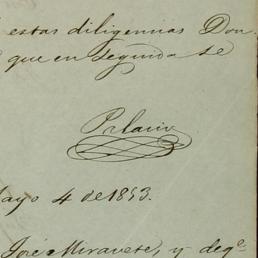 estas diligencias Don
que en seguida se
Olavio
Mayo 4 de 1853.
José Miravete, y deqe